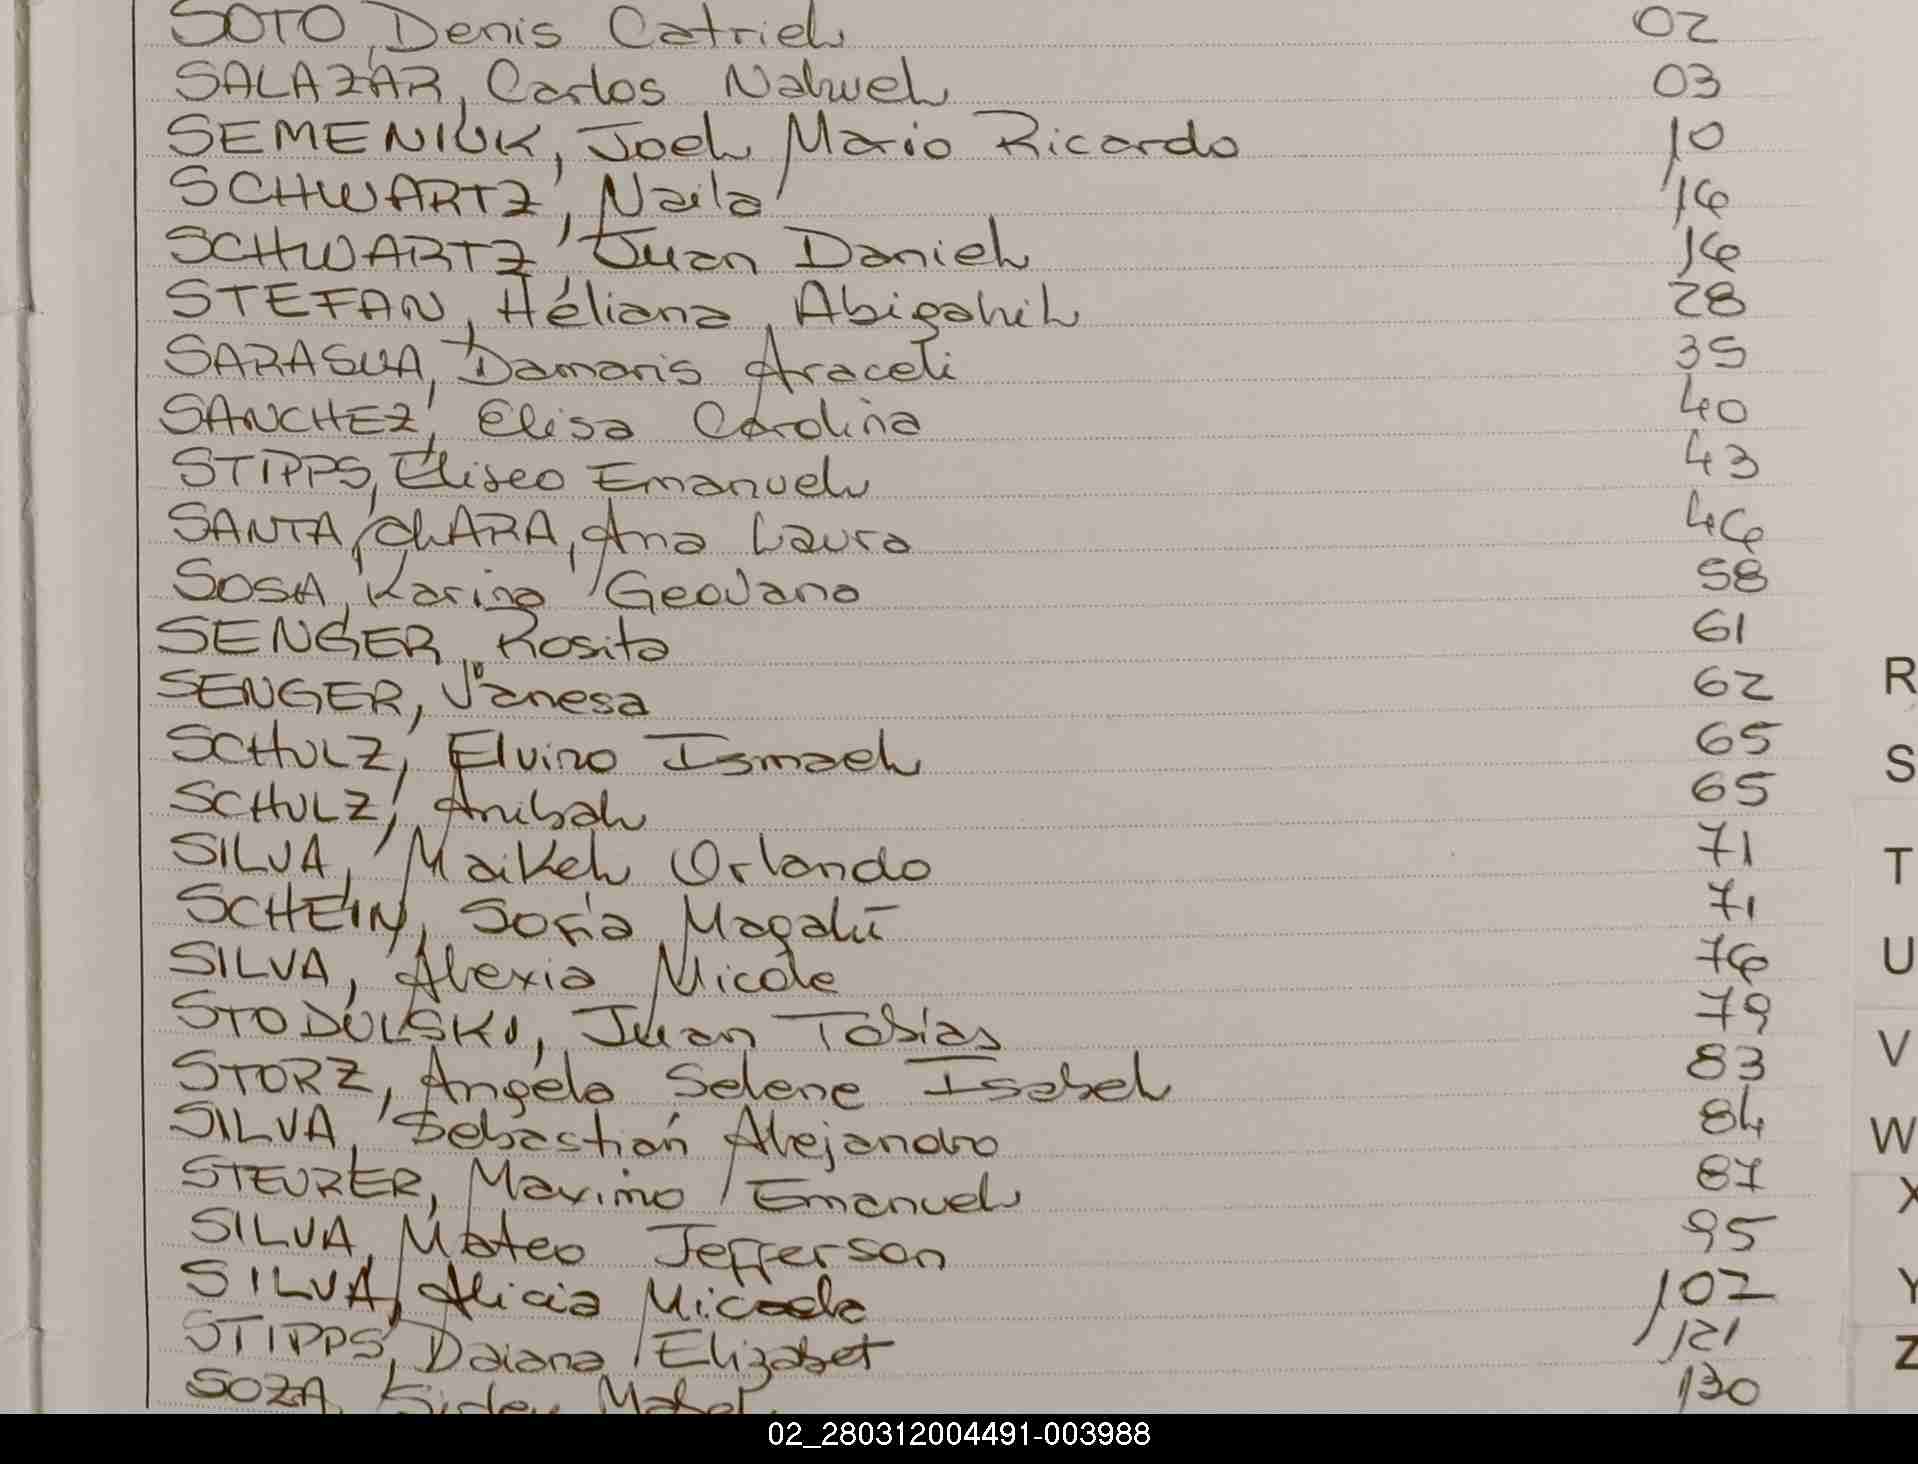 SOTO, Denis Catriel 02
SALAZAR, Carlos Nahuel 03
SEMENIUK, Joel Mario Ricardo 10
SCHWARTZ, Naila 16
SCHWARTZ, Juan Daniel 16
STEFAN, Héliana Abigahil 28
SARASUA, Damaris Araceli 35
SANCHEZ, Elisa Carolina 40
STIPPS, Eliseo Emanuel 43
SANTA CLARA, Ana Laura 46
SOSA, Karina Geovana 58
SENGER, Rosita 61
SENGER, Vanesa 62
SCHULZ, Elvino Ismael 65
SCHULZ, Anibal 65
SILVA, Maikel Orlando 71
SCHEIN, Sofía Magalí 71
SILVA, Alexia Nicole 76
STODULSKI, Juan Tobias 79
STORZ, Angela Selene Isabel 83
SILVA, Sebastián Alejandro 84
STEURER, Maximo Emanuel 87
SILVA, Mateo Jefferson 95
SILVA, Alicia 102
STIPPS, Daiana Elizabet 121
SOZA, Mabel 130
R
S
T
U
V
W
X
Y
Z
02_280312004491-003988